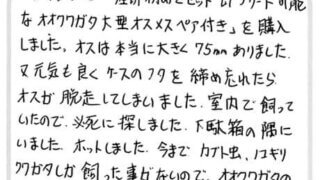 な オオクワガタ大型オスメスペア付き」を購入
しました。オスは本当に大きく75mmありました。
又元気も良くケースのフタを締め忘れたら
オスが脱走してしまいました。室内で飼って
いたので、必死に探しました。下駄箱の隅に
いました。ホットしました。今までカブト虫、ノコギリ
クワガタしか飼った事がないので、オオクワガタの